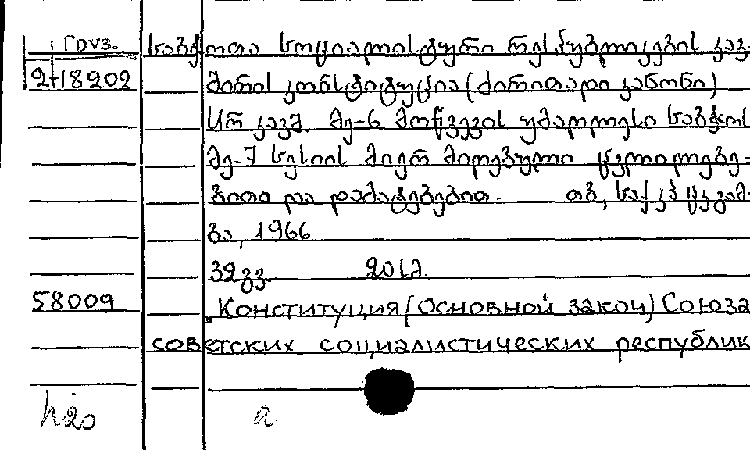 Груз. საბჭოთა სოციალისტური რესპუბლიკების კავ-
2-18202 შირის კონსტიტუცია (ძირითადი კანონი)
სსრ კავშ. მე-6 მოწვევის უმაღლესი საბჭოს
მე-7 სესიის მიერ მიღებული ცვლილებე-
ბითა და დამატებებით. თბ., საქ. კპ ცკ გამ-
ბა, 1966
32 გვ. 20 სმ.
58009 Конституция (Основной закон) Союза
советских социалистических республик
а